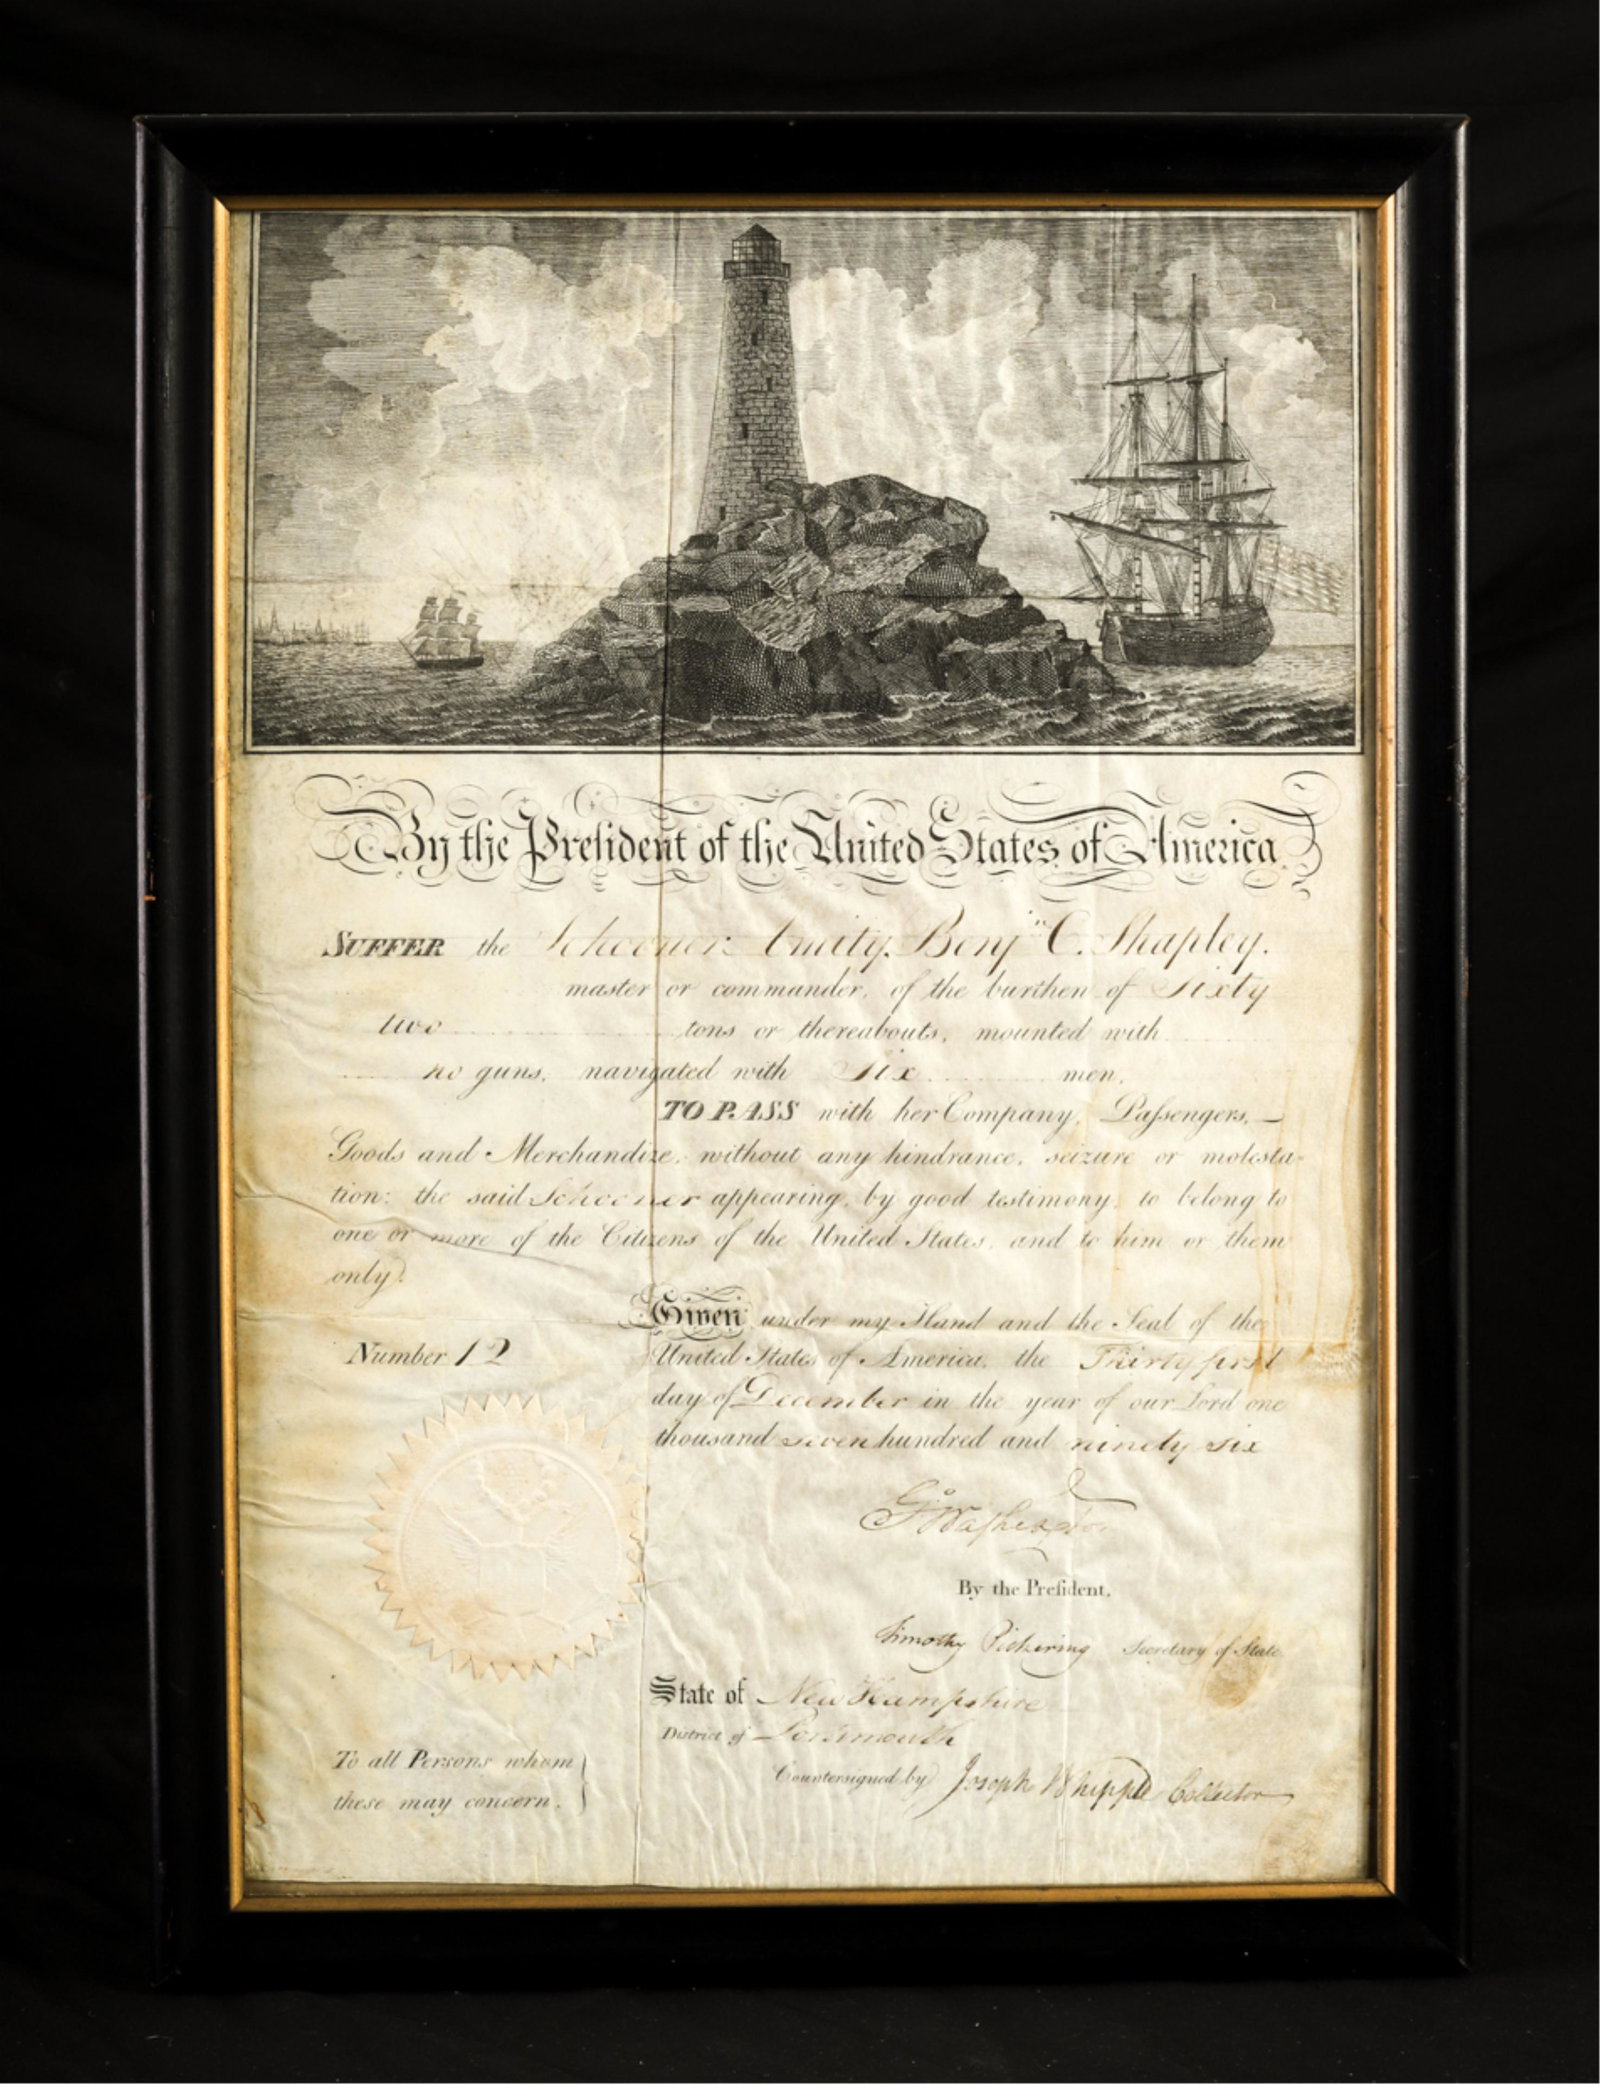 By the Preſident of the United States of America
SUFFER the Schooner Amity. Benjn. C. Shapley.
master or commander, of the burthen of Sixty
two tons or thereabouts, mounted with
no guns, navigated with Six men,
TO PASS with her Company, Paſsengers, —
Goods and Merchandize, without any hindrance, seizure or molesta-
tion: the said Schooner appearing, by good testimony, to belong to
one or more of the Citizens of the United States, and to him or them
only.
Given under my Hand and the Seal of the
Number 12 United States of America, the Thirty first
day of December in the year of our Lord one
thousand seven hundred and ninety six
Go Washington
By the Preſident.
Timothy Pickering Secretary of State
State of New Hampshire
District of Portsmouth
To all Persons whom
these may concern.
Countersigned by Joseph Whipple Collector